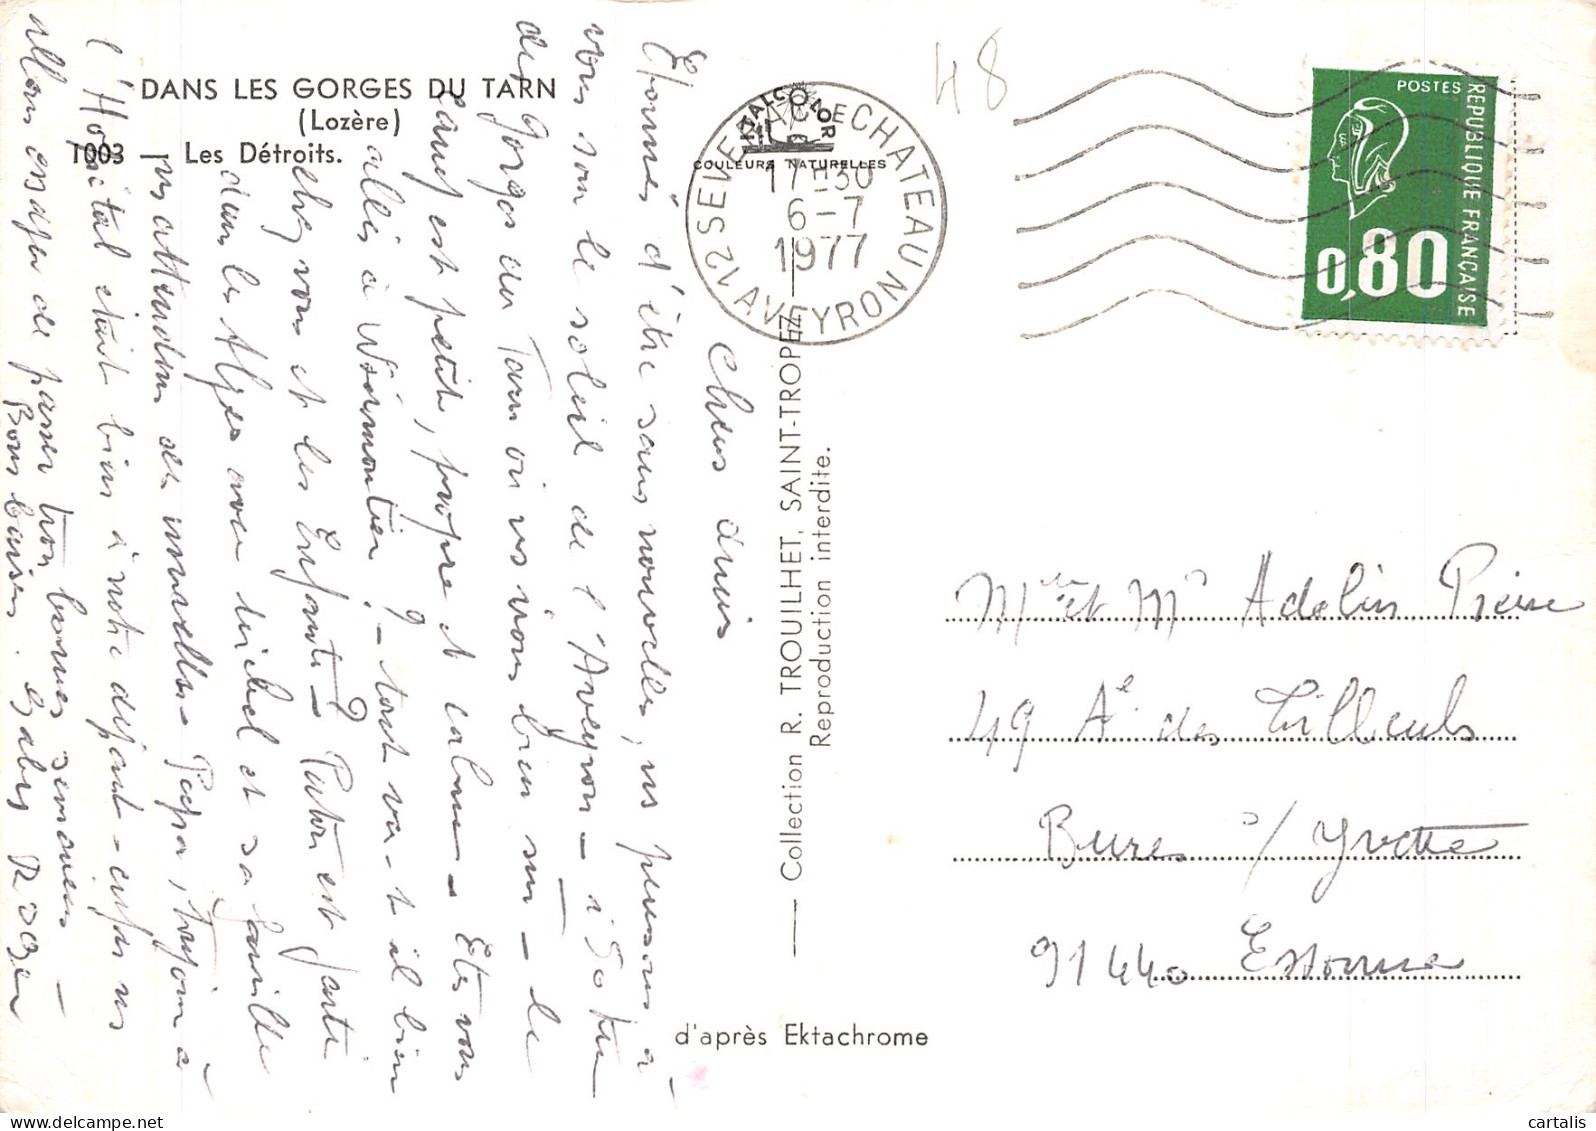 DANS LES GORGES DU TARN
(Lozère)
1003 — Les Détroits.
ITALCOLOR
COULEURS NATURELLES
SEVERAC LE CHATEAU
17-30
6-7
1977
12 AVEYRON
48
POSTES
REPUBLIQUE FRANÇAISE
0,80
Chers amis
Etonnés d'être sans nouvelles, ns pensons à
vous sous le soleil de l'Aveyron - à 50
des Gorges du Tarn où ns vivons bien sur - le
est petit, propre et calme - Etes vous
allés à Noirmoutier ? - tout va-t-il bien
chez vous et les Enfants - ? est partie
dans les Alpes avec Michel et sa famille
ns attendons des nouvelles - Papa, toujours à
l'Hôpital était bien à notre départ - enfin ns
allons essayer de passer trois bonnes semaines -
Bons baisers. Gaby
— Collection R. TROUILHET, SAINT-TROPEZ
Reproduction interdite.
Mme et Mr Adelin
49 Ae des Tilleuls
Bures s/ Yvette
91440 Essonne
d'après Ektachrome
cartalis